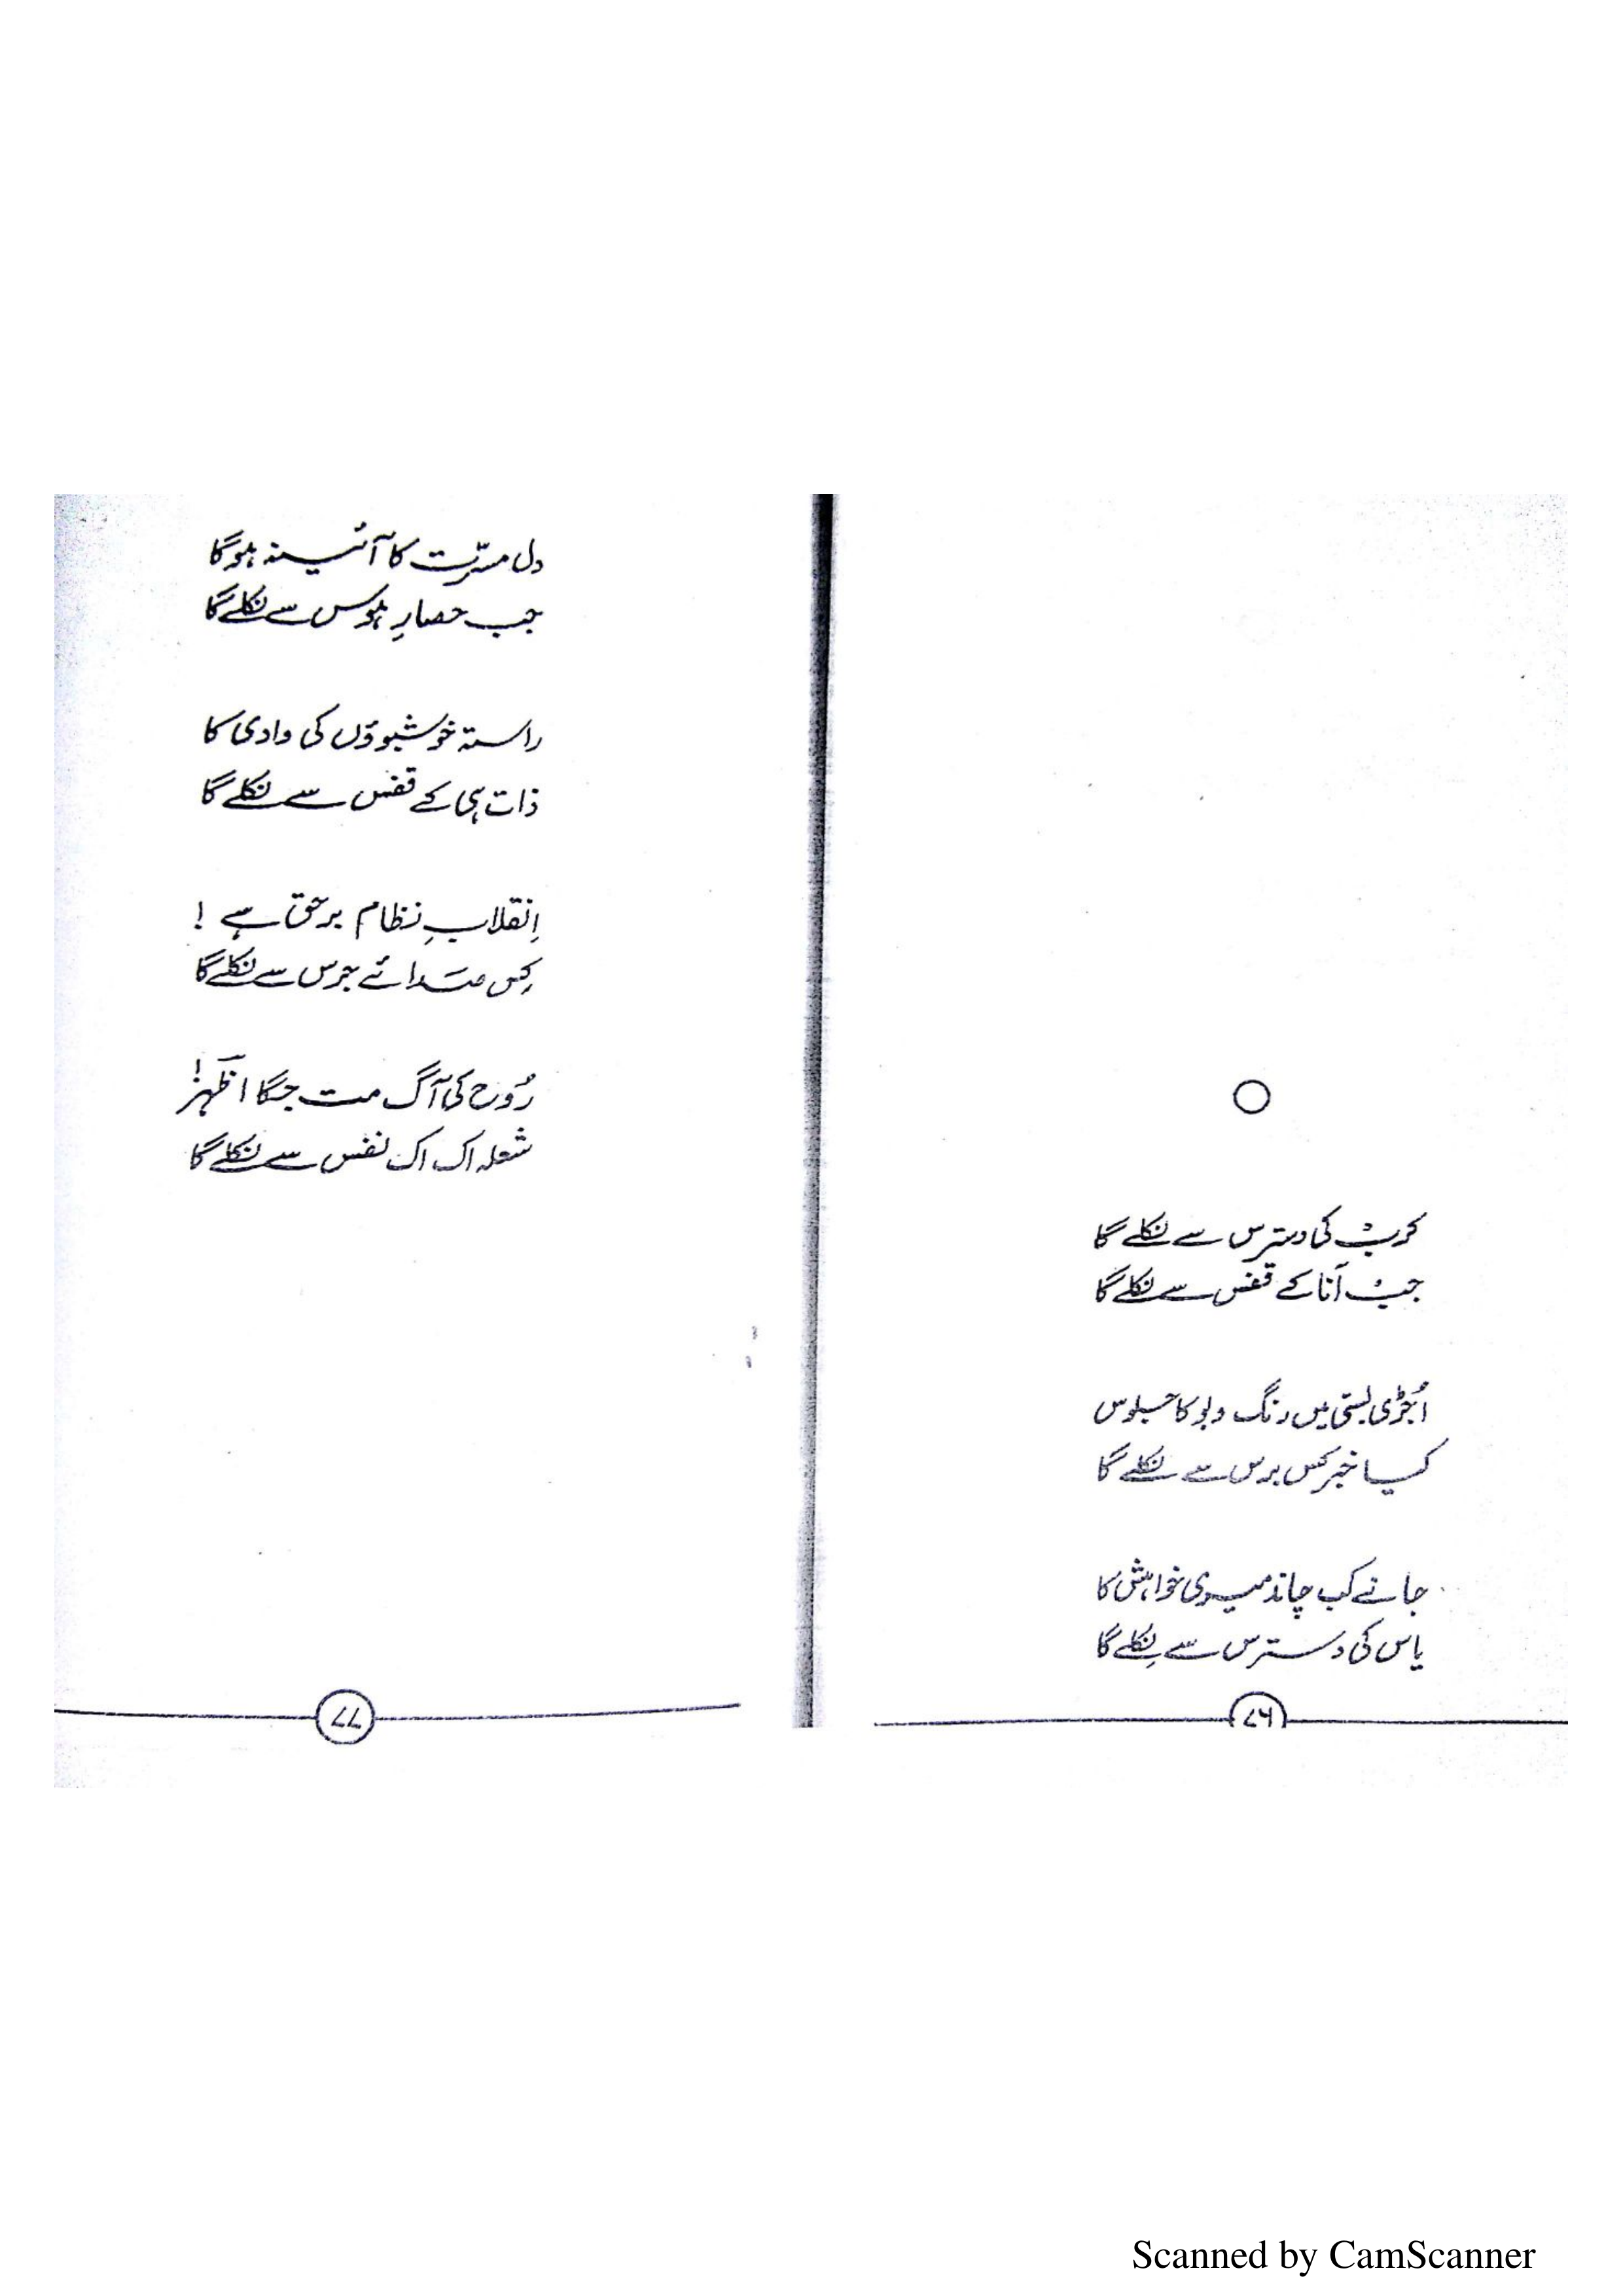 کرب کی دسترس سے نکلے گا
جب اَنا کے قفس سے نکلے گا
اُجڑی بستی میں رنگ و بو کا جلوس
کیا خبر کس برس سے نکلے گا
جانے کب چاند میری خواہش کا
یاس کی دسترس سے نِکلے گا
۷۶
دل مسرّت کا آئینہ ہوگا
جب حصارِ ہوس سے نکلے گا
راستہ خوشبوؤں کی وادی کا
ذات ہی کے قفس سے نکلے گا
اِنقلابِ نظام برحق ہے !
کِس صَدائے جرس سے نکلے گا
رُوح کی آگ مت جگا اظہرؔ!
شعلہ اک اک نفس سے نکلے گا
۷۷
Scanned by CamScanner